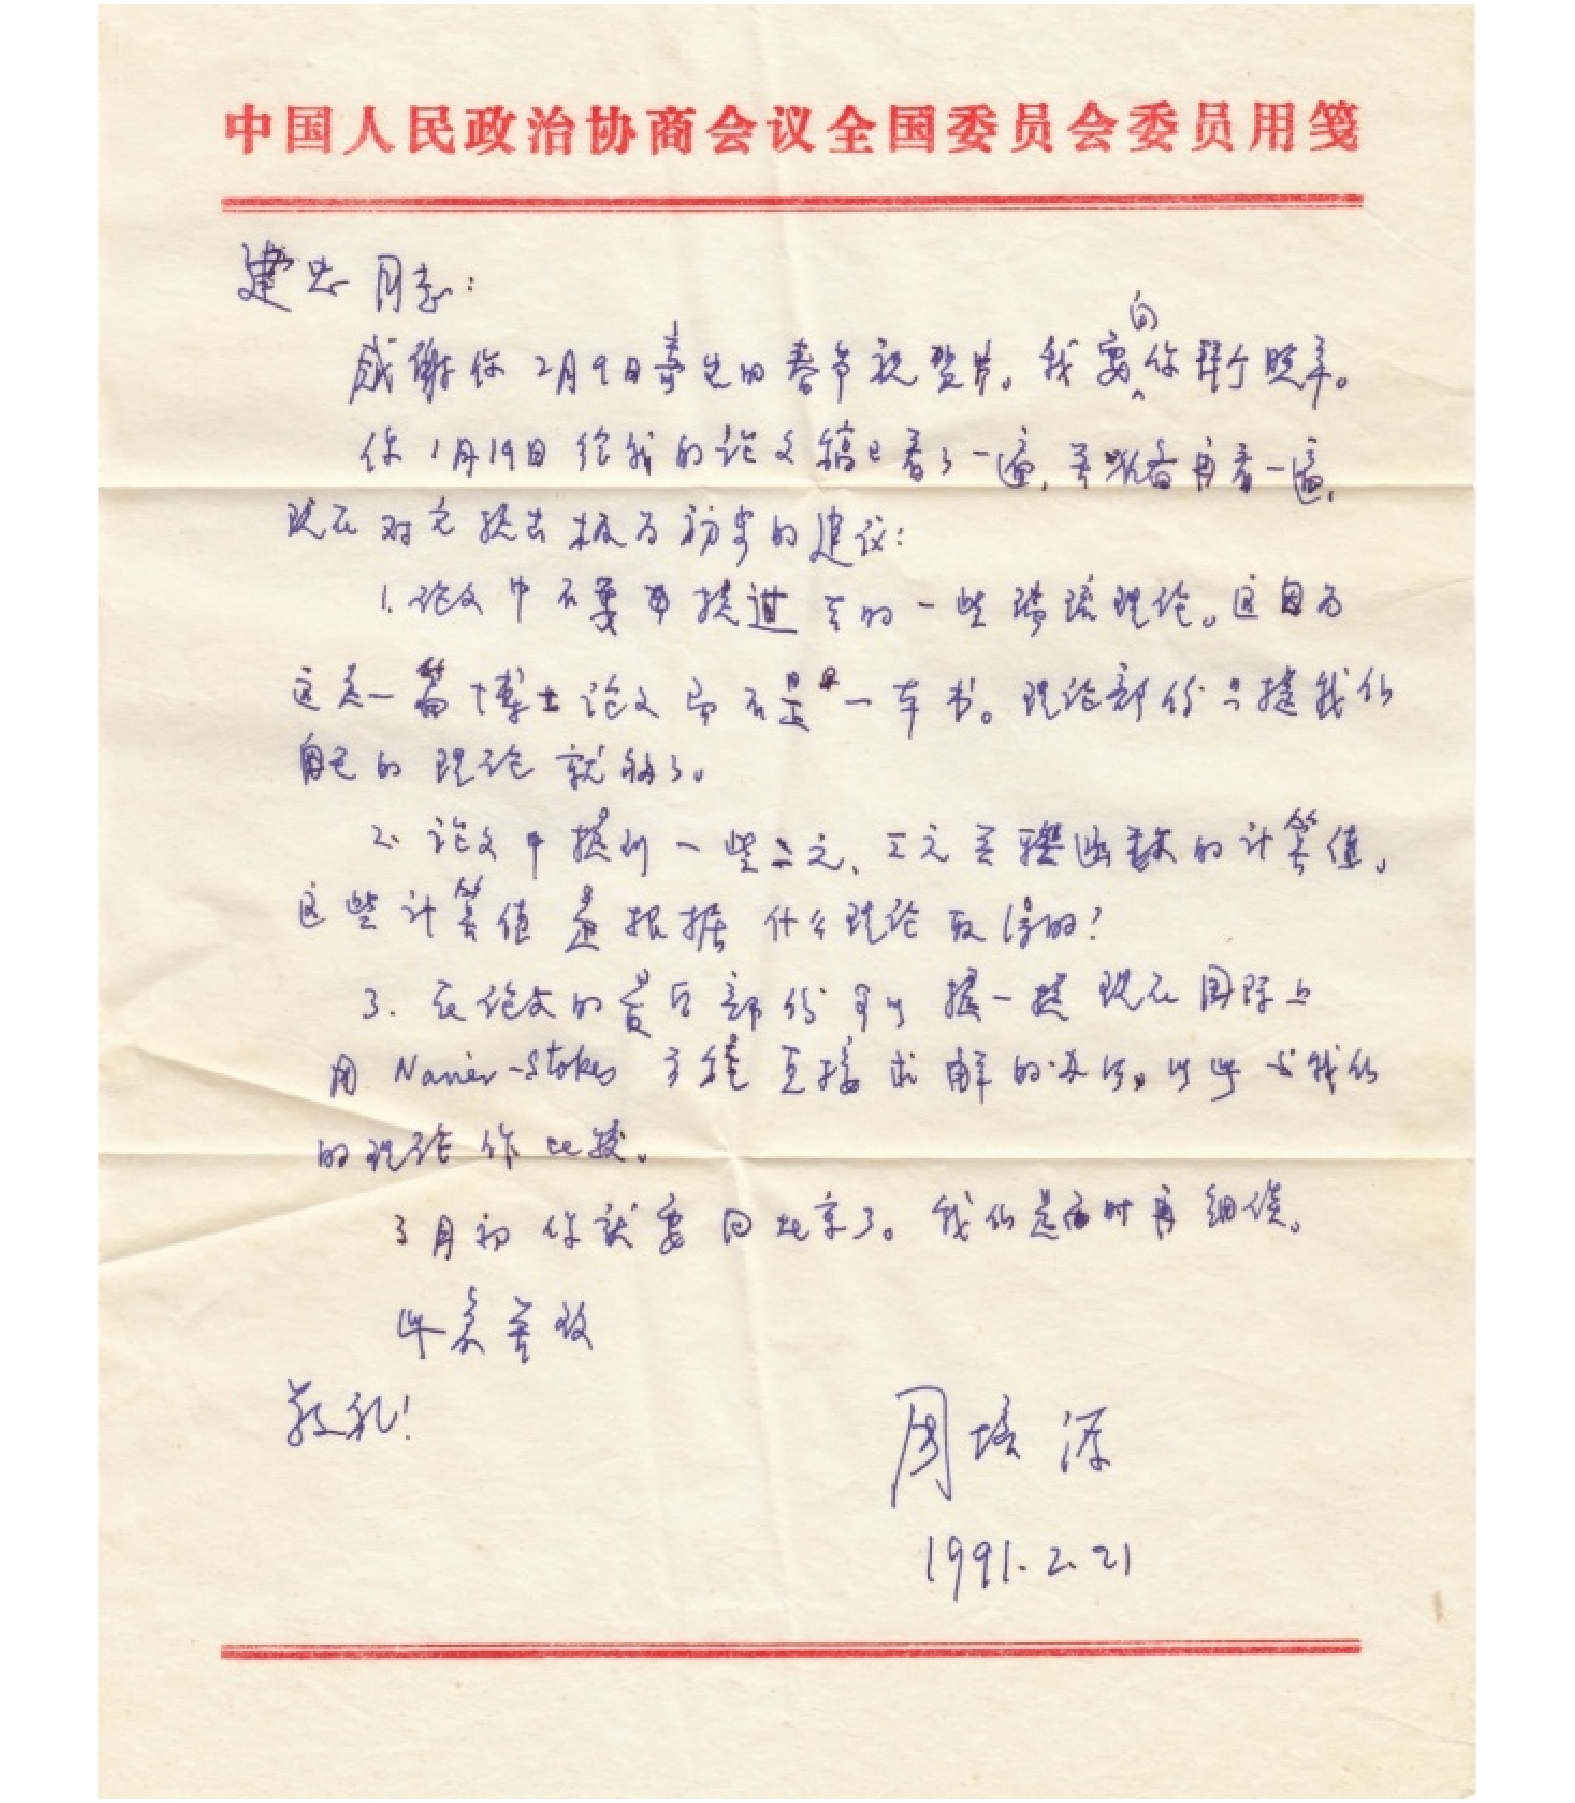 中国人民政治协商会议全国委员会委员用笺
建忠同志:
向
感谢你2月9日寄出的春节祝贺片。我要你拜个晚年。
你1月19日给我的论文稿已看了一遍,并准备再看一遍,
现在对它提出极为初步的建议:
1.论文中不要再提过去的一些湍流理论。这因为
这是一篇博士论文而不是一本书。理论部份只提我们
自己的理论就够了。
2.论文中提到一些二元、三元关联函数的计算值,
这些计算值是根据什么理论取得的?
3.在论文的最后部份可以提一提现在国际上
用Navier-Stokes方程直接求解的办法,以此与我们
的理论作比较。
3月初你就要回北京了。我们是面时再细谈。
此复并致
敬礼!
周培源
1991.2.21